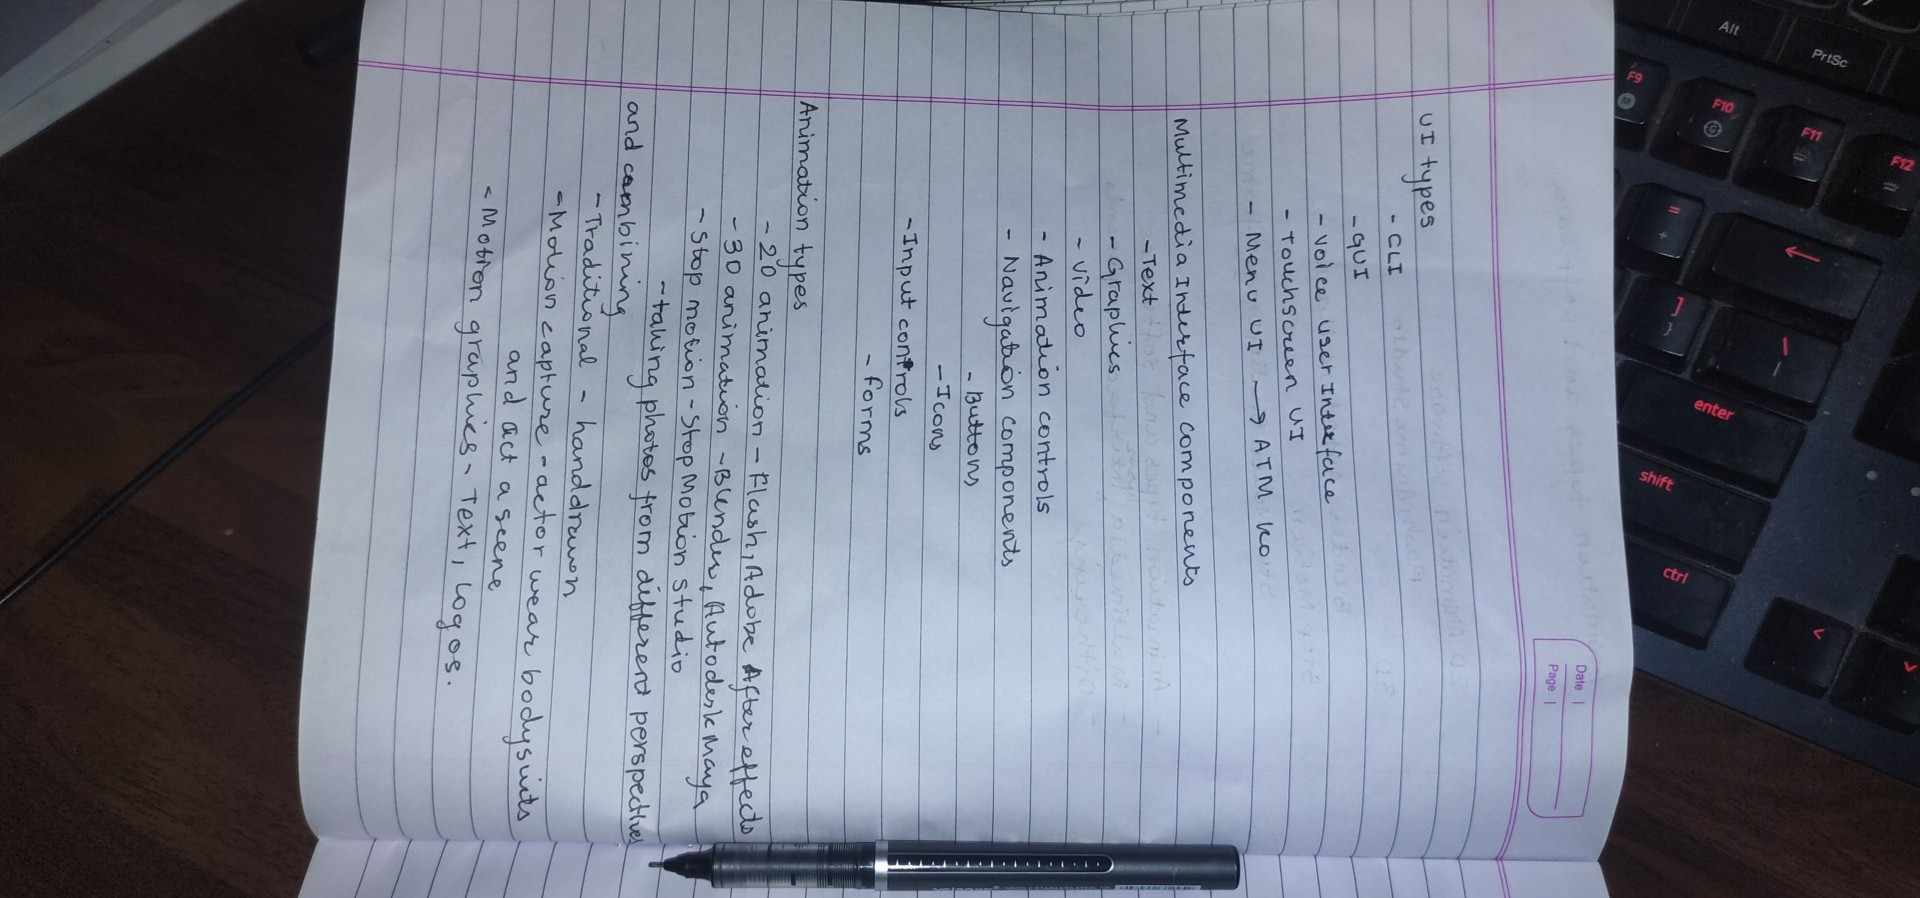 F12
PrtSc
F11
Alt
F10
F9
enter
shift
ctrl
Date
Page
UI types
- CLI
- GUI
- Voice User Interface
- Touchscreen UI
- Menu UI → ATM ko
Multimedia Interface components
- Text
- Graphics
- Video
- Animation controls
- Navigation components
- Buttons
- Icons
- Input controls
- forms
Animation types
- 2D animation - Flash, Adobe After effects
- 3D animation - Blender, Autodesk Maya
- Stop motion - Stop Motion Studio
- taking photos from different perspectives
and combining
- Traditional - handdrawn
- Motion capture - actor wear bodysuits
and act a scene
- Motion graphics - Text, Logos.